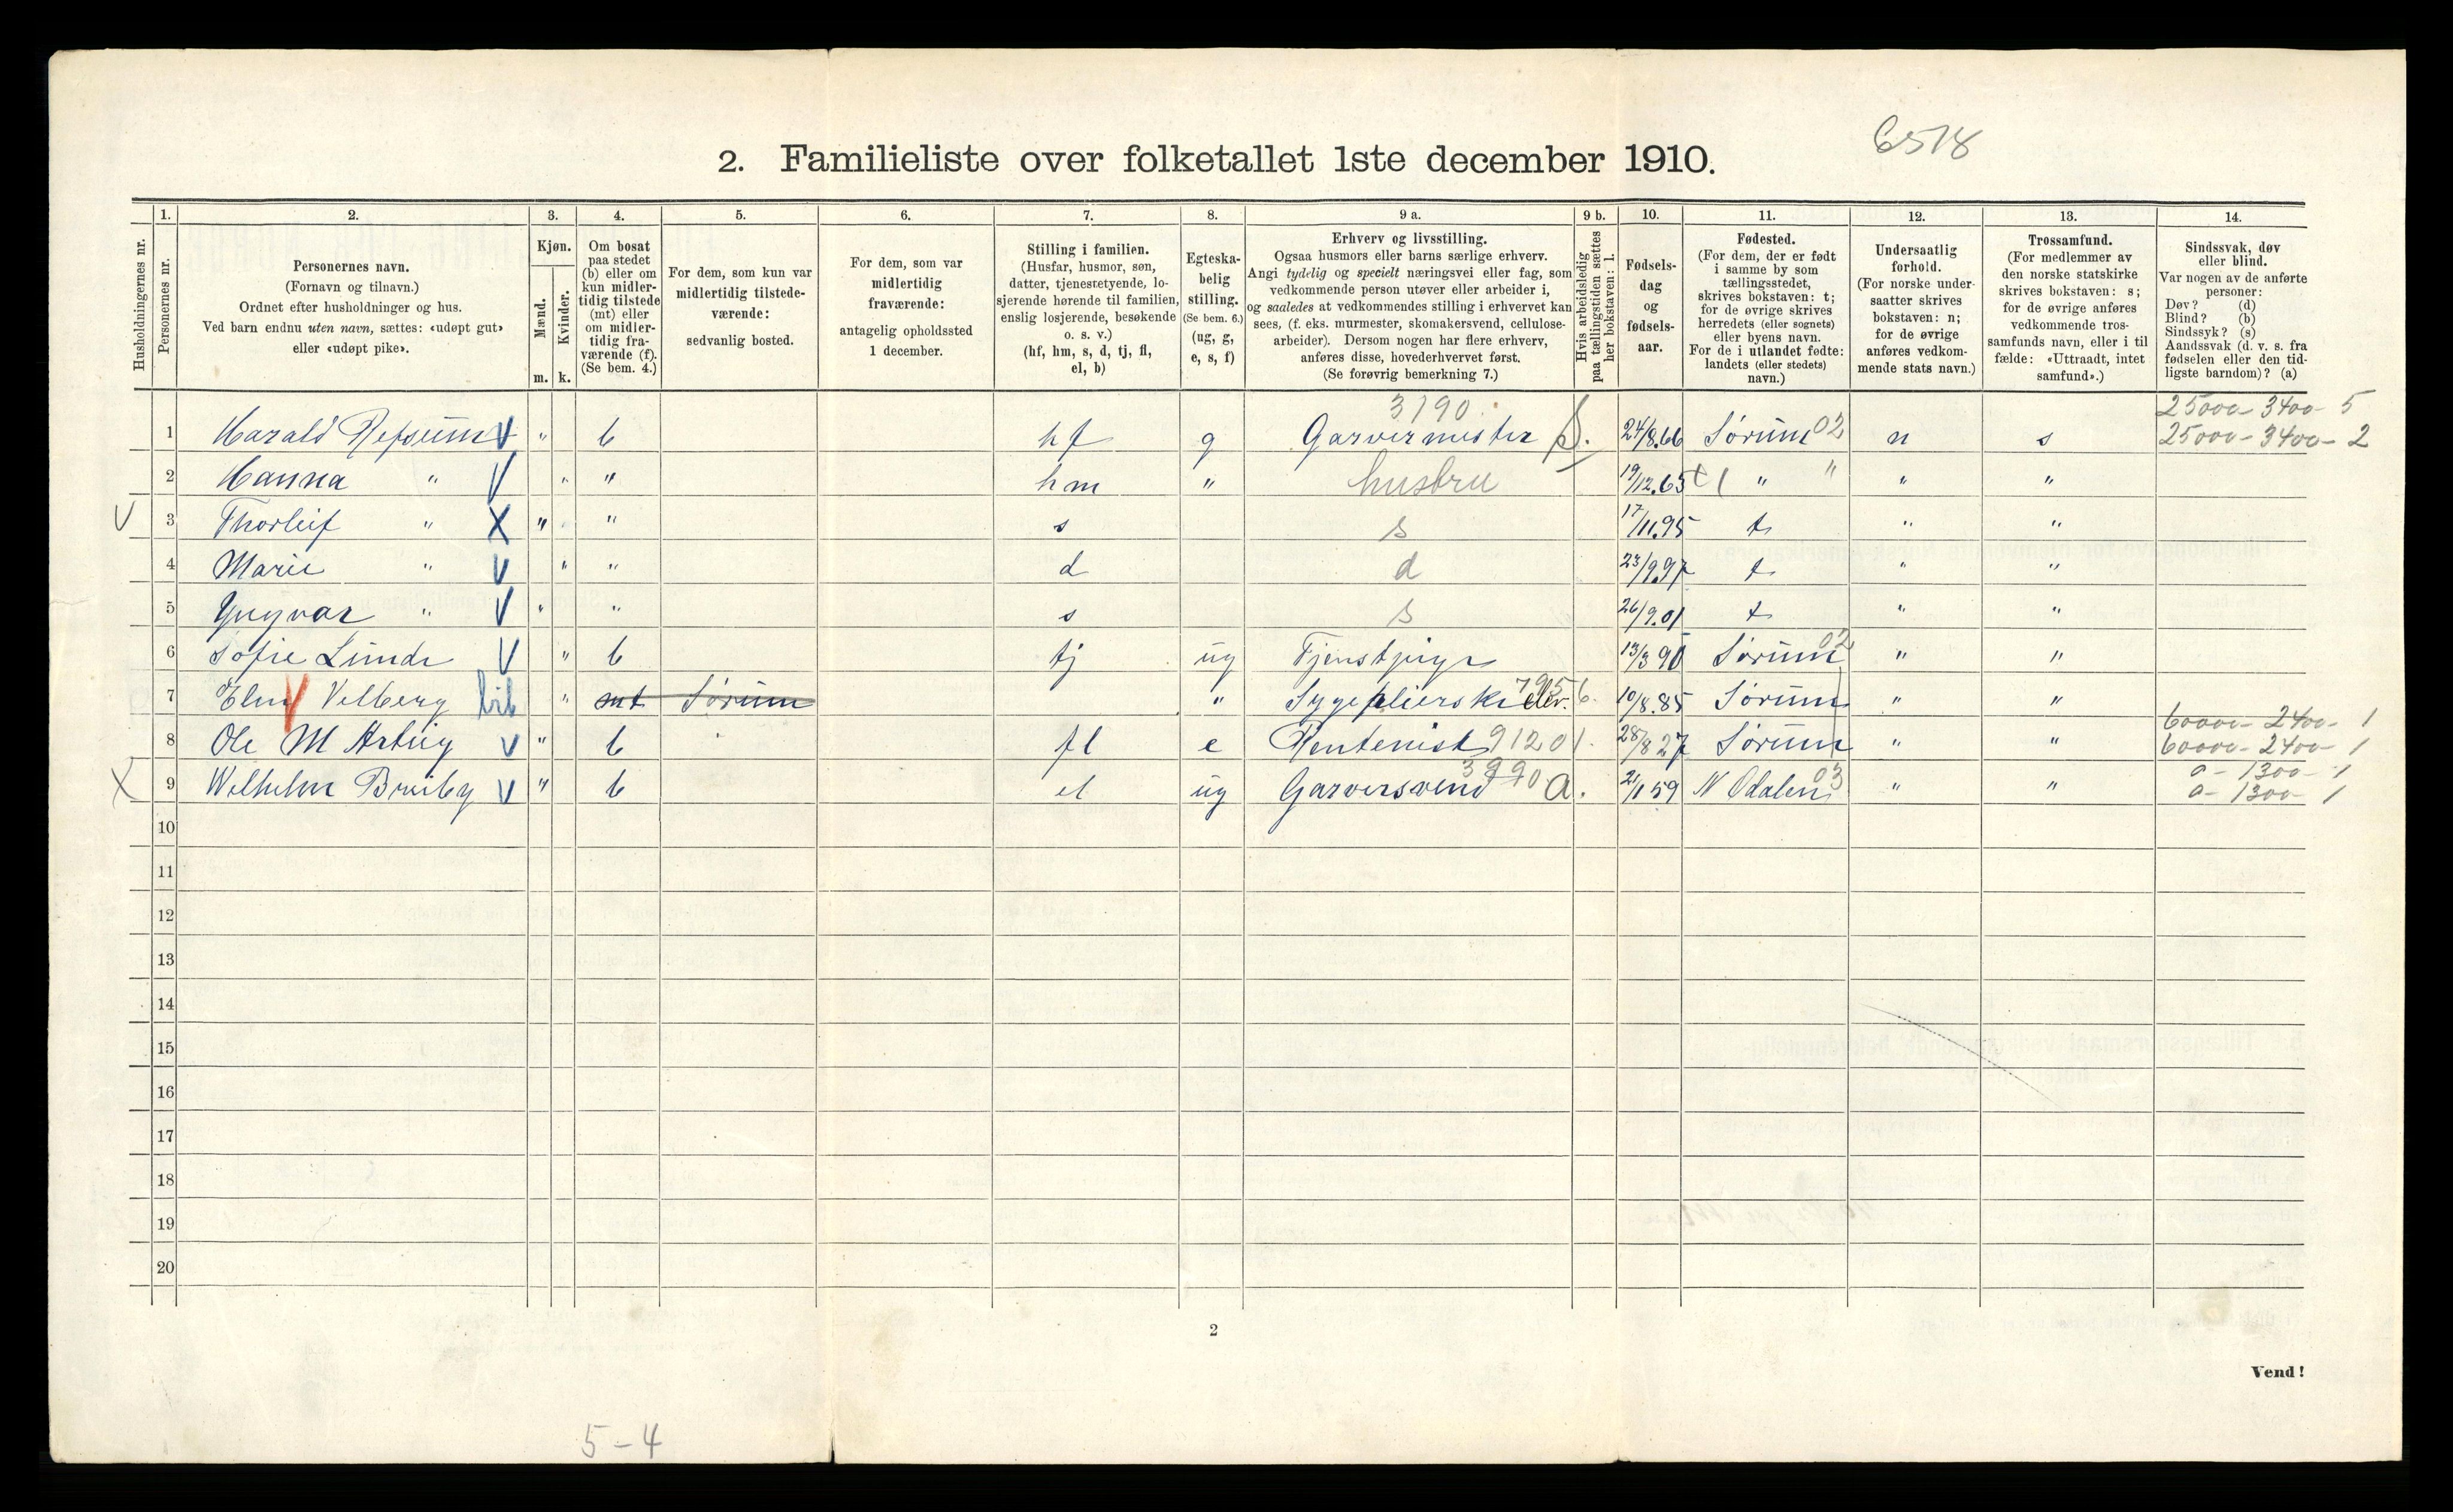 6518
2. Familieliste over folketallet 1ste december 1910.
1. 2. 3. 4. 5. 6. 7. 8. 9 a. 9 b. 10. 11. 12. 13. 14.
Husholdningernes nr.
Personernes nr.
Personernes navn.
(Fornavn og tilnavn.)
Ordnet efter husholdninger og hus.
Ved barn endnu uten navn, sættes: «udøpt gut»
eller «udøpt pike».
Kjøn.
Mænd.
m.
Kvinder.
k.
Om bosat
paa stedet
(b) eller om
kun midler-
tidig tilstede
(mt) eller
om midler-
tidig fra-
værende (f).
(Se bem. 4.)
For dem, som kun var
midlertidig tilstede-
værende:
sedvanlig bosted.
For dem, som var
midlertidig
fraværende:
antagelig opholdssted
1 december.
Stilling i familien.
(Husfar, husmor, søn,
datter, tjenestetyende, lo-
sjerende hørende til familien,
enslig losjerende, besøkende
o. s. v.)
(hf, hm, s, d, tj, fl,
el, b)
Egteska-
belig
stilling.
(Se bem. 6.)
(ug, g,
e, s, f)
Erhverv og livsstilling.
Ogsaa husmors eller barns særlige erhverv.
Angi tydelig og specielt næringsvei eller fag, som
vedkommende person utøver eller arbeider i,
og saaledes at vedkommendes stilling i erhvervet kan
sees, (f. eks. murmester, skomakersvend, cellulose-
arbeider). Dersom nogen har flere erhverv,
anføres disse, hovederhvervet først.
(Se forøvrig bemerkning 7.)
Hvis arbeidsledig
paa tællingstiden sættes
her bokstaven: l.
Fødsels-
dag
og
fødsels-
aar.
Fødested.
(For dem, der er født
i samme by som
tællingsstedet,
skrives bokstaven: t;
for de øvrige skrives
herredets (eller sognets)
eller byens navn.
For de i utlandet fødte:
landets (eller stedets)
navn.)
Undersaatlig
forhold.
(For norske under-
saatter skrives
bokstaven: n;
for de øvrige
anføres vedkom-
mende stats navn.)
Trossamfund.
(For medlemmer av
den norske statskirke
skrives bokstaven: s;
for de øvrige anføres
vedkommende tros-
samfunds navn, eller i til
fælde: «Uttraadt, intet
samfund».)
Sindssvak, døv
eller blind.
Var nogen av de anførte
personer:
Døv? (d)
Blind? (b)
Sindssyk? (s)
Aandssvak (d. v. s. fra
fødselen eller den tid-
ligste barndom)? (a)
3190 25000 - 3400 - 5
1 Harald Refsum V " b hf g Garvermester 24/8.66 Sørum 02 n s 25000 - 3400 - 2
2 Hanna " V " " hm " hustru 19/12.65 " " " "
V 3 Thorleif " X " " s s 17/11.95 t " "
4 Marie " V " " d d 23/9.97 t " "
5 Yngvar " V " " s s 26/9.01 t " "
6 Sofie Lunde V " b tj ug Tjenstpige 13/3 90 Sørum 02 " "
7 V Velberg " mt Sørum " Sygepleierske elev. 10/8.85 Sørum " "
60000 - 2400 - 1
8 Ole M V " b fl e Rentenist 91201. 28/8 27 Sørum " " 60000 - 2400 - 1
0 - 1300 - 1
X 9 Wilhelm V " b el ug Garversvend 3990 a. 21/1 59 N Odalen 03 " " 0 - 1300 - 1
10
11
12
13
14
15
16
17
18
19
20
2
Vend!
5-4